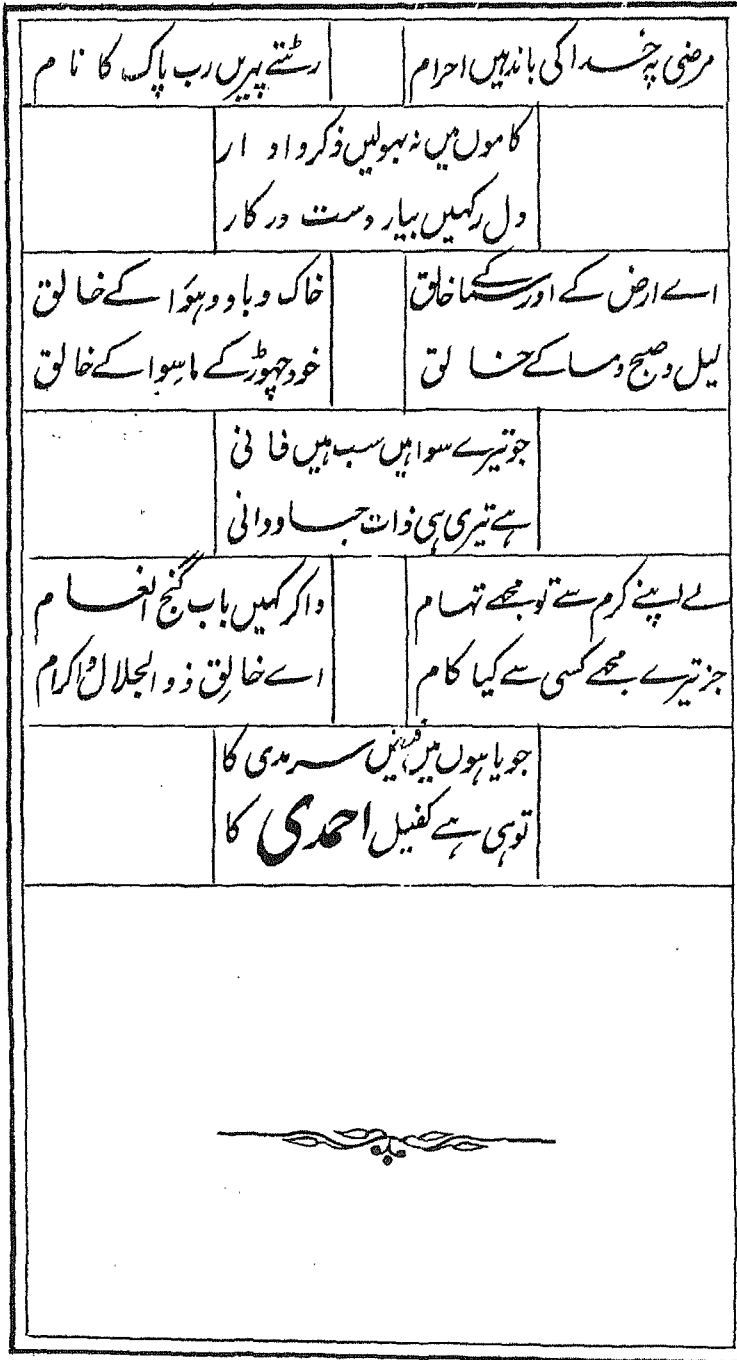 مرضی پہ خدا کی باندہیں احرام رٹتے پہریں رب پاک کا نام
کاموں میں نہ بہولیں ذکر و اذکار
دل رکہیں بیار دست در کار
اے ارض کے اور سما کے خالق خاک و باد و ہوَا کے خالق
لیل و صبح و مسا کے خالق خود چہوڑ کے ماسِوا کے خالق
جو تیرے سوا ہیں سب ہیں فانی
ہے تیری ہی ذات جاودانی
لے اپنے کرم سے تو مجہے تہام وا کر کہیں باب گنج انعام
جز تیرے مجہے کسی سے کیا کام اے خالِق ذوالجلال واکرام
جویا ہوں میں سرمدی کا
توہی ہے کفیل احمدی کا